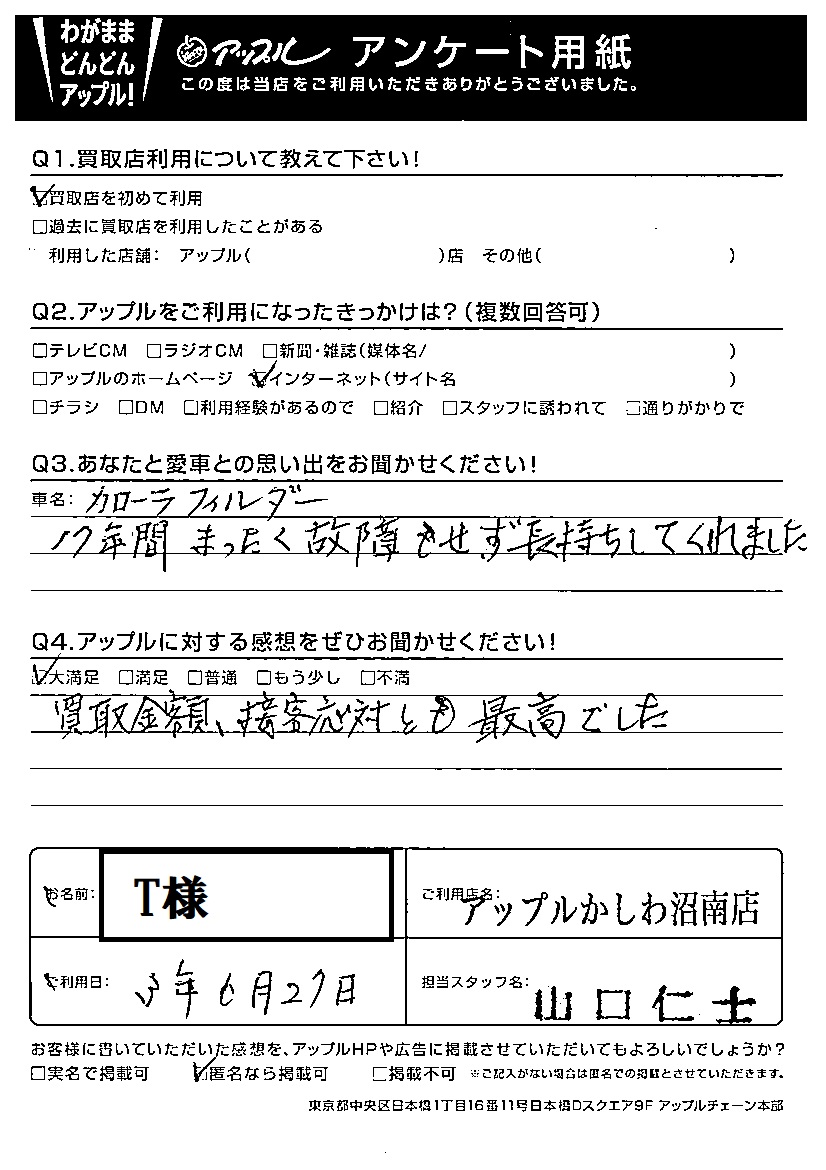 わがまま
どんどん
アップル!
アップル アンケート用紙
この度は当店をご利用いただきありがとうございました。
Q1.買取店利用について教えて下さい!
☑買取店を初めて利用
□過去に買取店を利用したことがある
利用した店舗: アップル( )店 その他( )
Q2.アップルをご利用になったきっかけは?(複数回答可)
□テレビCM □ラジオCM □新聞・雑誌(媒体名/ )
□アップルのホームページ ☑インターネット(サイト名 )
□チラシ □DM □利用経験があるので □紹介 □スタッフに誘われて □通りがかりで
Q3.あなたと愛車との思い出をお聞かせください!
車名: カローラフィルダー
17年間 まったく故障もせず長持ちしてくれました
Q4.アップルに対する感想をぜひお聞かせください!
☑大満足 □満足 □普通 □もう少し □不満
買取金額、接客応対とも最高でした
お名前: T様
ご利用店名: アップルかしわ沼南店
ご利用日: 3年6月27日
担当スタッフ名: 山口仁士
お客様に書いていただいた感想を、アップルHPや広告に掲載させていただいてもよろしいでしょうか?
□実名で掲載可 ☑匿名なら掲載可 □掲載不可 ※ご記入がない場合は匿名での掲載とさせていただきます。
東京都中央区日本橋1丁目16番11号日本橋Dスクエア9F アップルチェーン本部